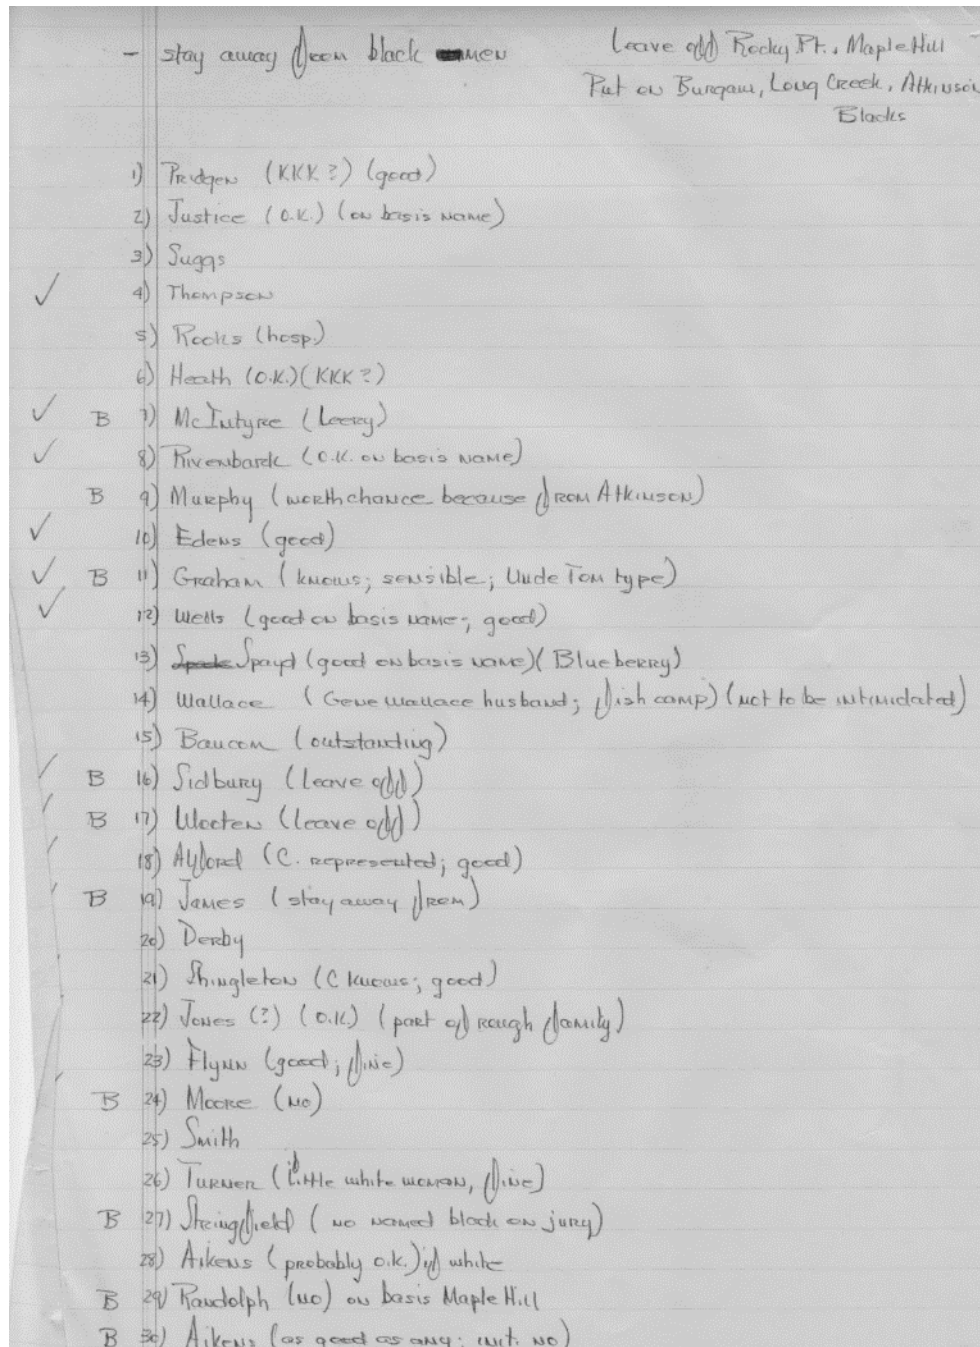 - stay away from black men
Leave off Rocky Pt., Maple Hill
Put on Burgaw, Long Creek, Atkinson
Blacks
1) Pridgen (KKK?) (good)
2) Justice (O.K.) (on basis name)
3) Suggs
✓ 4) Thompson
5) Rooks (hosp.)
6) Heath (O.K.) (KKK?)
✓ B 7) McIntyre (Leery)
✓ 8) Rivenbark (O.K. on basis name)
B 9) Murphy (worth chance because from Atkinson)
✓ 10) Edens (good)
✓ B 11) Graham (knows; sensible; Uncle Tom type)
✓ 12) Wells (good on basis name; good)
13) Spayd (good on basis name) (Blueberry)
14) Wallace (Gene Wallace husband; fish camp) (not to be intimidated)
15) Baucom (outstanding)
✓ B 16) Sidbury (leave off)
✓ B 17) Wooten (leave off)
✓ 18) Alford (C. represented; good)
✓ B 19) James (stay away from)
20) Derby
21) Shingleton (C knows; good)
22) Jones (?) (O.K.) (part of rough family)
23) Flynn (good; fine)
✓ B 24) Moore (no)
25) Smith
26) Turner (if little white woman, fine)
B 27) Stringfield (no named black on jury)
28) Aikens (probably o.k.) if white
B 29) Randolph (no) on basis Maple Hill
B 30) Aikens (as good as any; no)